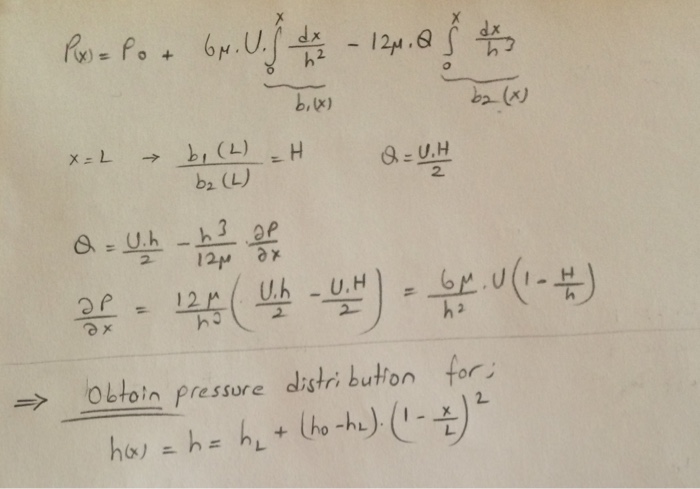 P(x) = P₀ + 6μ.U.∫₀ˣ dx/h² - 12μ.Q ∫₀ˣ dx/h³
b₁(x) b₂(x)
x = L → b₁(L)/b₂(L) = H Q = U.H/2
Q = U.h/2 - h³/12μ . ∂P/∂x
∂P/∂x = 12μ/h³ ( U.h/2 - U.H/2 ) = 6μ/h² . U (1 - H/h)
⇒ Obtain pressure distribution for;
h(x) = h = h_L + (h₀ - h_L).(1 - x/L)²